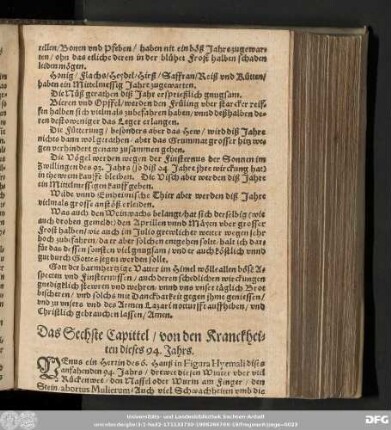 rellen/ Bonen vnd Pfeben/ haben nit ein böß Jahr zugewar-
ten/ ohn das etliche deren in der blühet Frost halben schaden
leiden mögen.
Honig/ Flachs/ Heydel/ Hirß/ Saffran/ Reiß vnd Rüeten/
haben ein Mittelmessig Jahr zugewarten.
Die Nüß gerathen diß Jahr ersprießlich gnugsam.
Bieren vnd Opffel/ werden den Früling vber starcker reif-
fen halben sich vielmals zubefahren haben/ vnnd deßhalben de-
ren destoweniger das Leger erlangen.
Die Fütterung/ besonders aber das Hew/ wird diß Jahrs
nichts dann wolgerathen/ aber das Grummat grosser hitz we-
gen verhindert genaw zusammen gehen.
Die Vögel werden wegen der Finsternus der Sonnen im
Zwillingen des 93. Jahrs (so diß 94. Jahrs ihre wirckung hat)
in thewrem kauffe bleiben. Die Visch aber werden diß Jahr
ein Mittelmessigen kauff geben.
Wilde vnnd Einheimische Thier aber werden diß Jahre
vielmals grosse anstöß erleiden.
Was auch den Weinwachs belangt/ hat sich derselbig (wie
auch droben gemelt) den Aprillen vnnd Mäyen vber grosser
Frost halben/ wie auch im Julio grewlicher wetter wegen sehr
hoch zubefahren/ da er aber solchen entgehen solte/ halt ich dars
für das dessen sonsten viel gnugsam/ vnd er auch köstlich vnnd
gut durch Gottes segen werden solle.
Gott der barmhertzige Vatter im Himel wölle allen böse As-
specten vnd Finsternussen/ auch deren schedlichen wirckungen
gnediglich stewren vnd wehren/ vnnd vns vnser täglich Brot
bescheren/ vnd solchs mit Danckbarkeit gegen jhme geniessen/
vnd zu vnsers vnd des Armen Lazari notturfft auffheben/ vnd
Christlich gebrauchen lassen/ Amen.
Das Sechste Capittel/ von den Kranckhei-
ten dieses 94. Jahrs.
VEnus ein Herrin des 6. Hauß in Figura Hyemali diß
anfahenden 94. Jahrs/ drewet diesen Winter vber viel
Rückenwee/ den Naffel oder Wurm am Finger/ den
Stein/ abortus Mulierum/ Auch viel Schwachheiten vnd die